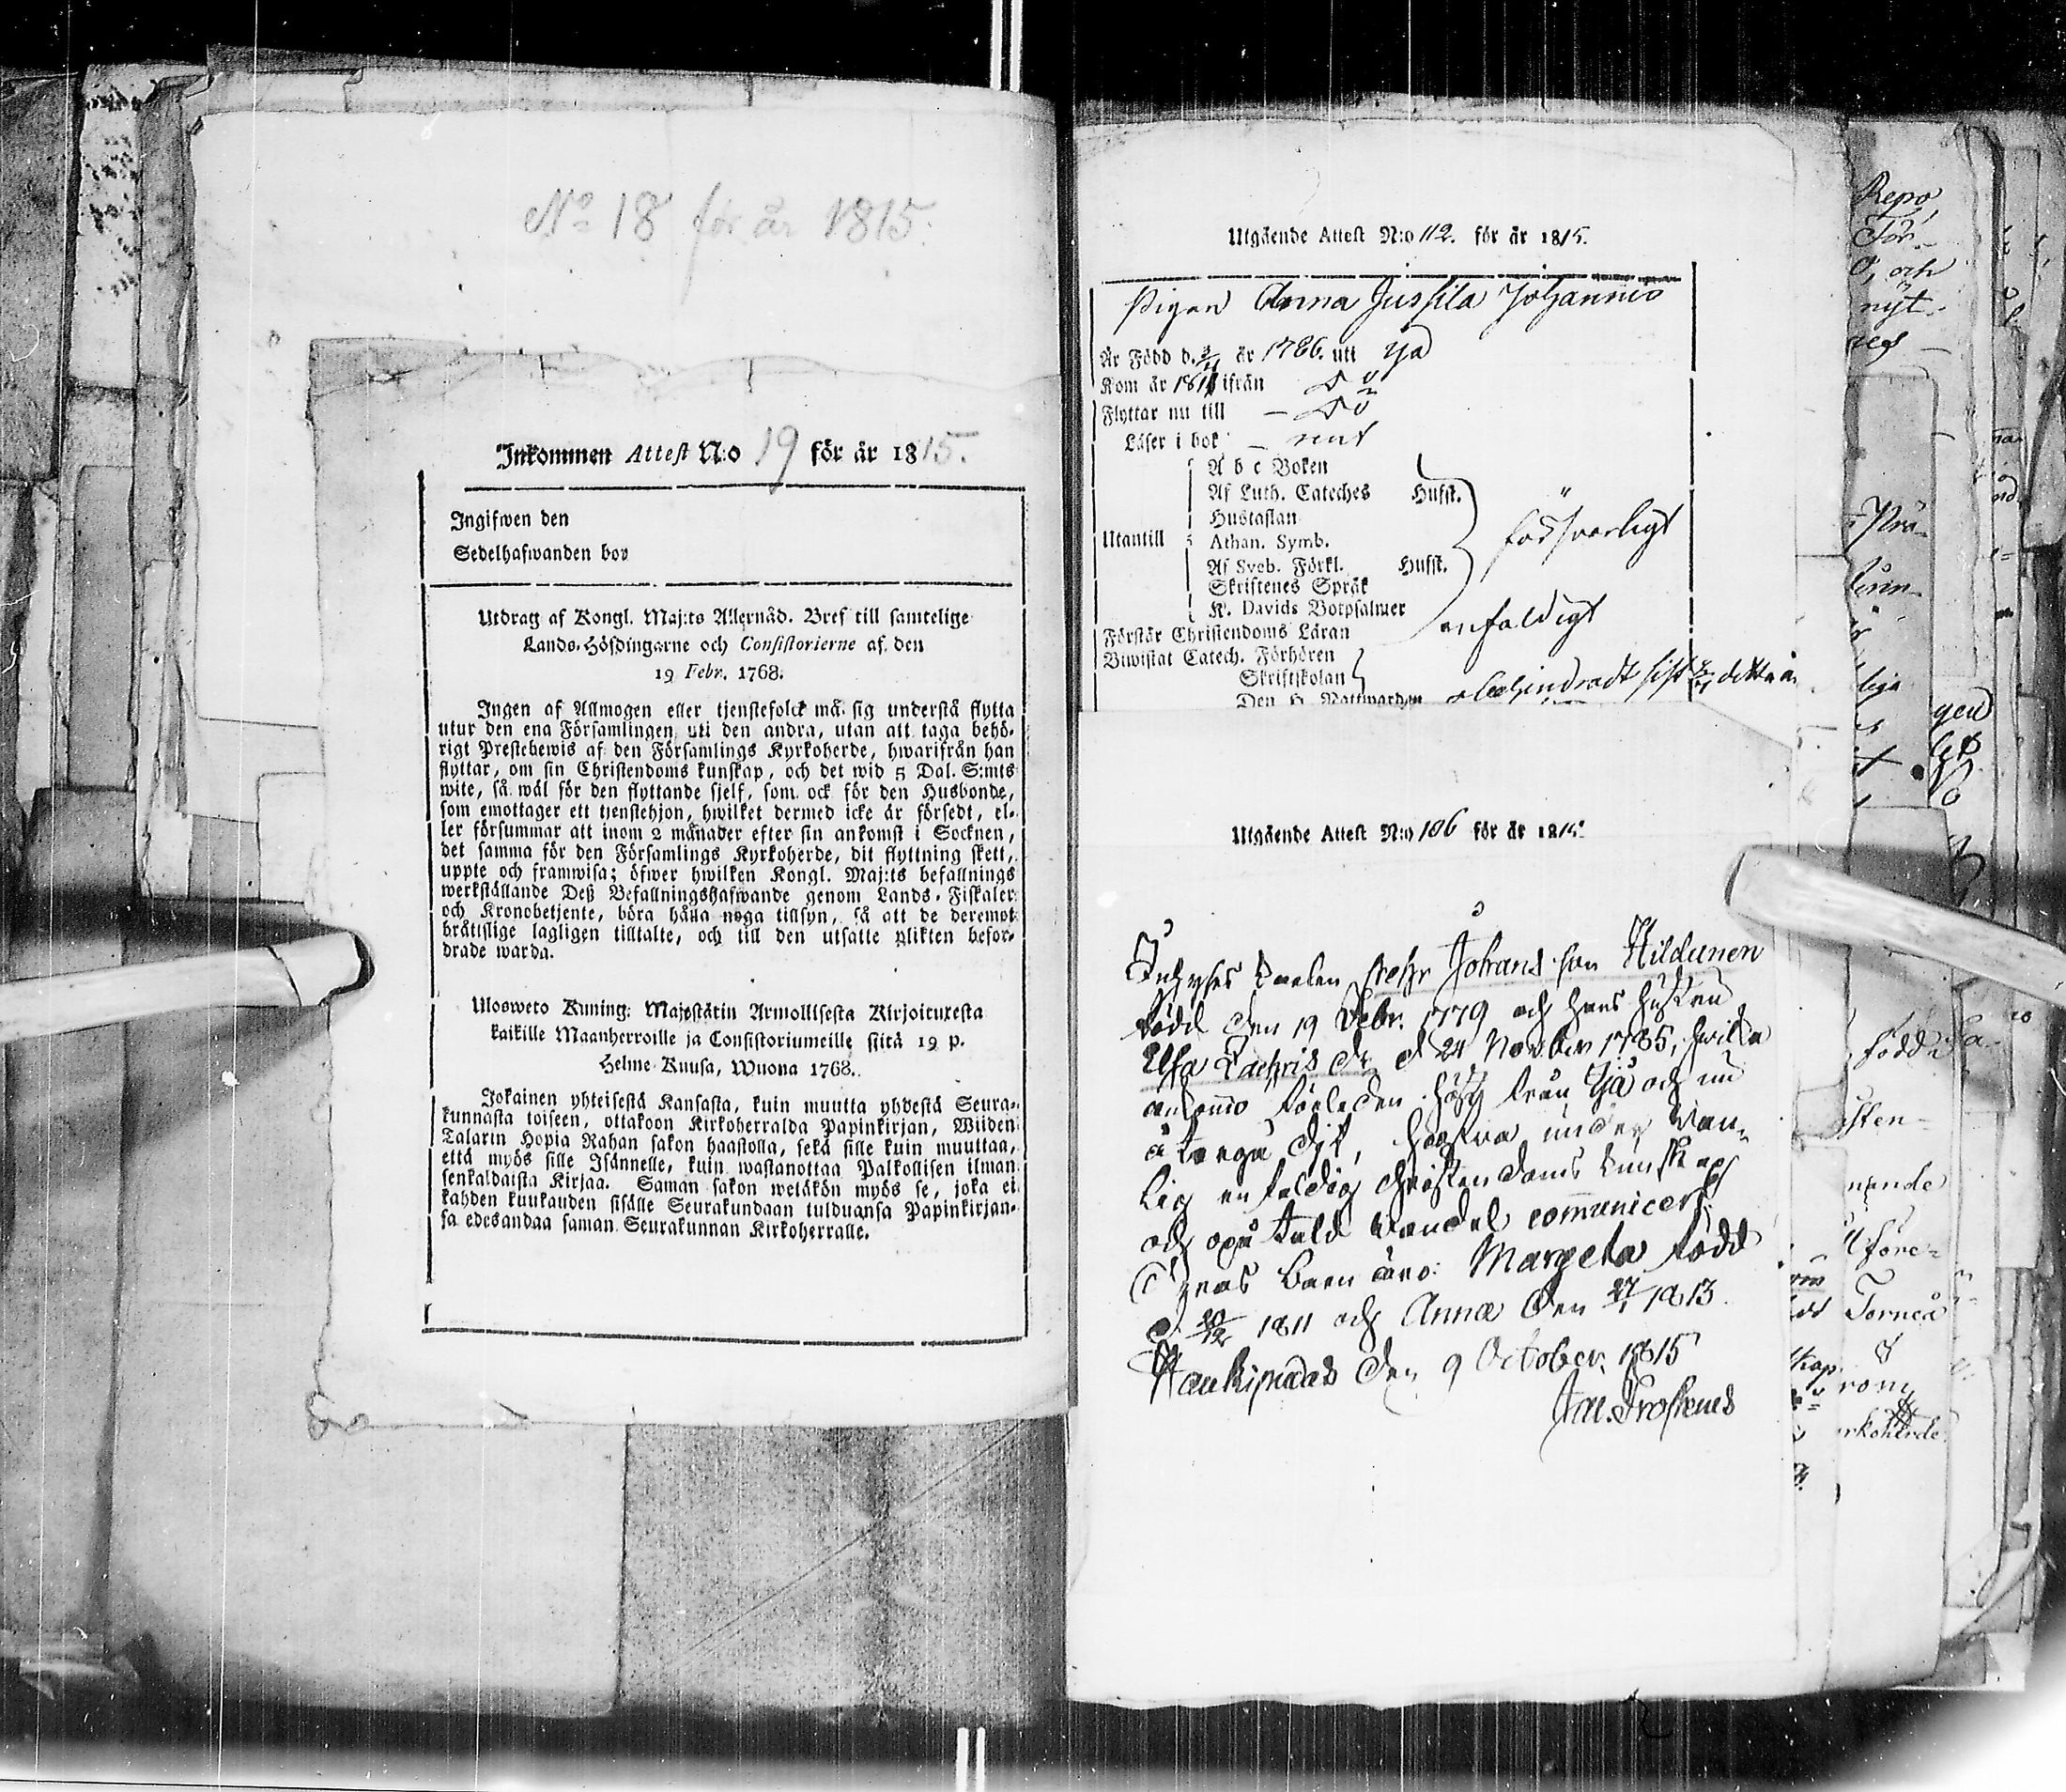 No 18 för år 1815.
Inkommen Attest N:o 19 för år 1815.
Ingifwen den
Sedelhafwanden bor
Utdrag af Kongl. Maj:ts Allernåd. Bref till samtelige
Lands-Höfdingarne och Consistorierne af den
19 Febr. 1768.
Ingen af Allmogen eller tjenstefolck må sig understå flytta
utur den ena Församlingen uti den andra, utan att taga behö-
rigt Prestebewis af den Församlings Kyrkoherde, hwarifrån han
flyttar, om sin Christendoms kunskap, och det wid 5 Dal. S:mts
wite, så wäl för den flyttande sjelf, som ock för den Husbonde,
som emottager ett tjenstehjon, hwilket dermed icke är försedt, el-
ler försummar att inom 2 månader efter sin ankomst i Socknen,
det samma för den Församlings Kyrkoherde, dit flyttning skett,
uppte och framwisa; öfwer hwilken Kongl. Maj:ts befallnings
werkställande Deß Befallningshafwande genom Lands-Fiskaler
och Kronobetjente, böra hålla noga tillsyn, så att de deremot
brätislige lagligen tilltalte, och till den utsatte plikten befor-
drade warda.
Ulosweto Kuning: Majestätin Armollisesta Kirjoituxesta
kaikille Maanherroille ja Consistoriumeille siitä 19 p.
Helme Kuusa, Wuona 1768.
Jokainen yhteisestä Kansasta, kuin muutta yhdestä Seura-
kunnasta toiseen, ottakoon Kirkoherralda Papinkirjan, Wiiden
Talarin Hopia Rahan sakon haastolla, sekä sille kuin muuttaa,
että myös sille Isännelle, kuin wastanottaa Palkollisen ilman
senkaldaista Kirjaa. Saman sakon wetäkön myös se, joka ei
kahden kuukauden sisälle Seurakundaan tulduansa Papinkirjan-
sa edesandaa saman Seurakunnan Kirkoherralle.
Utgående Attest N:o 112. för år 1815.
Pigan Anna Jussila Johannis
Är Född d. år 1786. uti Ijo
Kom år 181 ifrån Do
Flyttar nu till – Do
Läser i bok – rent
A b c Boken
Af Luth. Cateches Husst.
Hustaflan
Utantill Athan. Symb. försvarligt
Af Sveb. Förkl. Husst.
Skriftenes Språk
K. Davids Botpsalmer
Förstår Christendoms Läran enfaldigt
Biwistat Catech. Förhören
Skriftskolan
Den H. Nattwarden obehindradt sist detta år
Utgående Attest N:o 106 för år 1815.
Inhyses Petr Johans son Hildunen
född den 19 Febr. 1779 och hans hustru
Elsa Zachris dr d 24 November 1785, hwilka
ankommo förleden höst från Ijå och nu
återgå dit, hafwa under wan-
lig enfaldig Christendoms kunskap
och otald wandel communicerat.
Deras barn äro: Margeta född
d. 20/12 1811 och Anna den 27/1 1813.
Haukipudas den 9 October 1815
Jac. Frosterus
Repo
För-
O, och
nyt
född
sten-
nande
före-
Torneå
kap
rkoherde